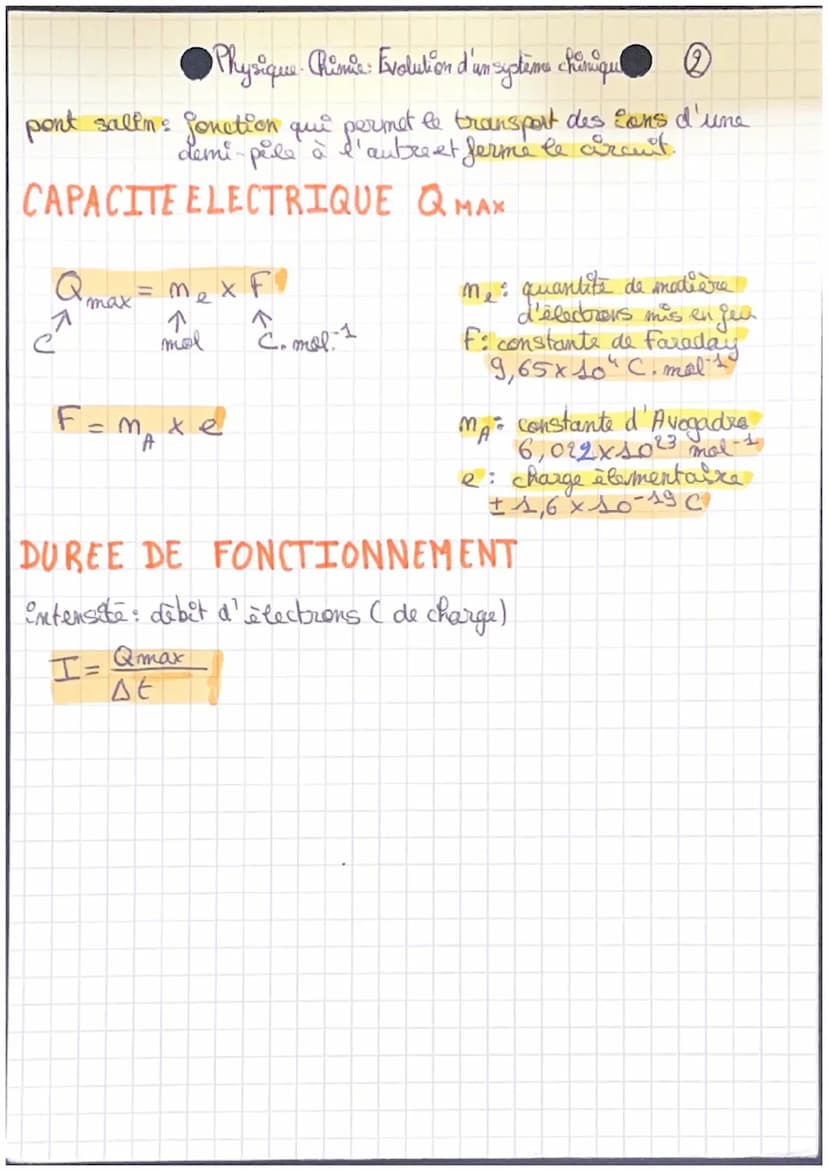 Physique-Chimie: Evolution d'un système chimique ②
pont salin: jonction qui permet le transport des ions d'une
demi-pile à l'autre et ferme le circuit.
CAPACITE ELECTRIQUE Q MAX
Qmax = ne x F
↑ ↑ ↑
C mol C.mol⁻¹
ne: quantité de matière
d'électrons mis en jeu
F: constante de Faraday
9,65 x 10⁴ C.mol⁻¹
F = nA x e
nA: constante d'Avogadro
6,022 x 10²³ mol⁻¹
e: charge élementaire
± 1,6 x 10⁻¹⁹ C
DUREE DE FONCTIONNEMENT
intensité: débit d'électrons (de charge)
I = Qmax
Δt